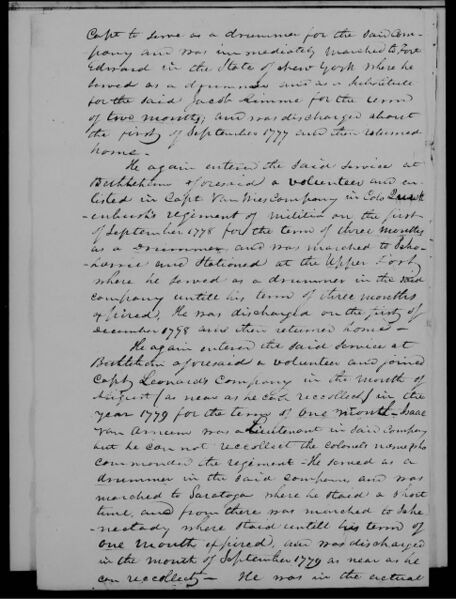 Capt to serve as a drummer for the said Com-
pany and was immediately marched to Fort
Edward in the State of New York where he
served as a drummer and as a substitute
for the said Jacob Limme for the term
of two months; and was discharged about
the first of September 1777 and then returned
home -
He again entered the said service at
Bethlehem aforesaid a volunteer and en-
listed in Capt Van Wies Company in Colo Quack
enbush's regiment of militia on the first
of September 1778 for the term of three months
as a Drummer and was marched to Scho-
harrie and stationed at the Upper Fort
where he served as a drummer in the said
company untill his term of three months
expired, He was discharged on the first of
December 1778 and then returned home -
He again entered the said service at
Bethlehem aforesaid a volunteer and joined
Capt Leonards Company in the month of
August (as near as he can recollect) in the
year 1779 for the term of one month - Isaac
Van Arneum was a Lieutenant in said Company
but he can not reccollect the colonels name who
commanded the regiment - He served as a
drummer in the said company and was
marched to Saratoga where he staid a short
time, and from there was marched to Sche-
nectady where staid untill his term of
one month expired, and was discharged
in the month of September 1779 as near as he
can reccollect - He was in the actual